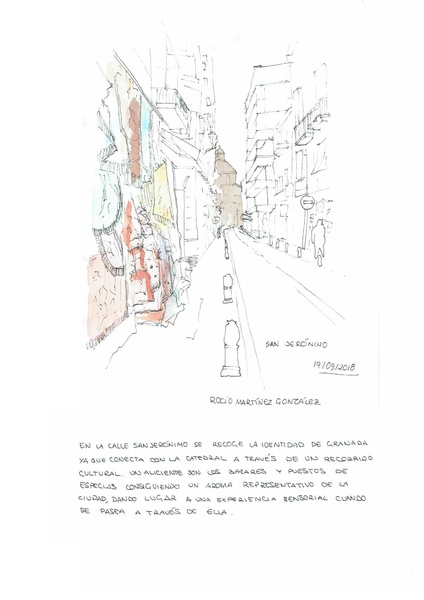 SAN JERÓNIMO
19/09/2018
ROCÍO MARTÍNEZ GONZÁLEZ
EN LA CALLE SAN JERÓNIMO SE RECOGE LA IDENTIDAD DE GRANADA
YA QUE CONECTA CON LA CATEDRAL A TRAVÉS DE UN RECORRIDO
CULTURAL. UN ALICIENTE SON LOS BAZARES Y PUESTOS DE
ESPECIAS CONSIGUIENDO UN AROMA REPRESENTATIVO DE LA
CIUDAD, DANDO LUGAR A UNA EXPERIENCIA SENSORIAL CUANDO
SE PASEA A TRAVÉS DE ELLA.